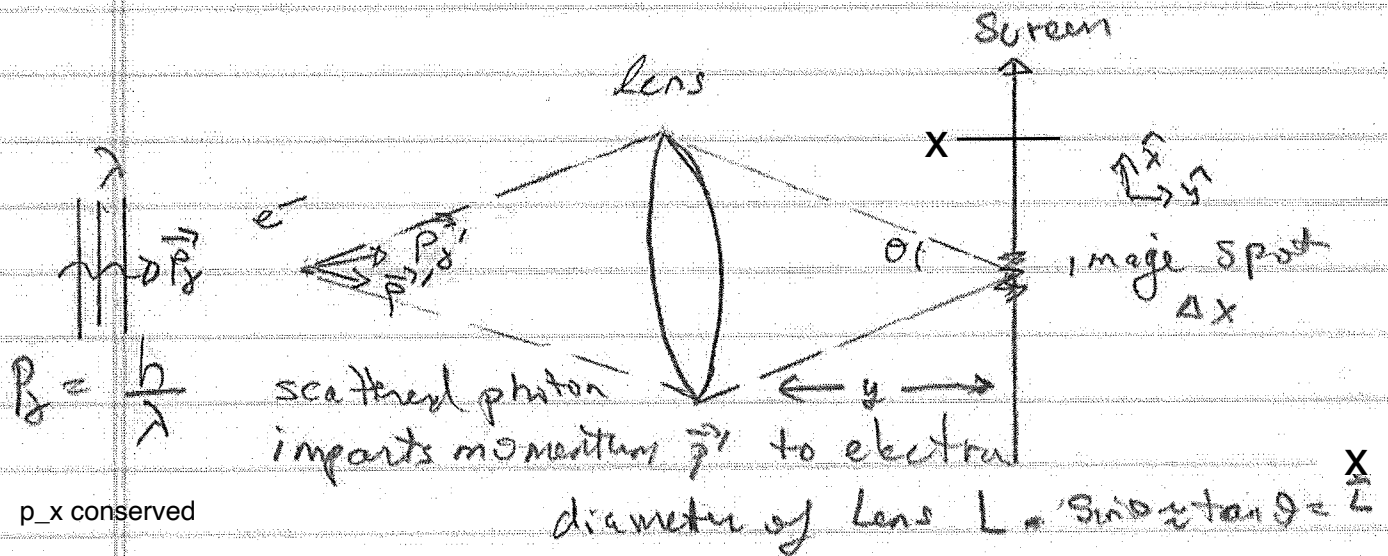 Screen
Lens
X
λ
x̂
ŷ
e⁻
p⃗γ
p⃗γ'
p⃗'
θ
image spot
Δx
Pγ = h/λ
scattered photon
y
imparts momentum p⃗' to electron
p_x conserved
diameter of Lens L. Sinθ ≈ tanθ = X/L